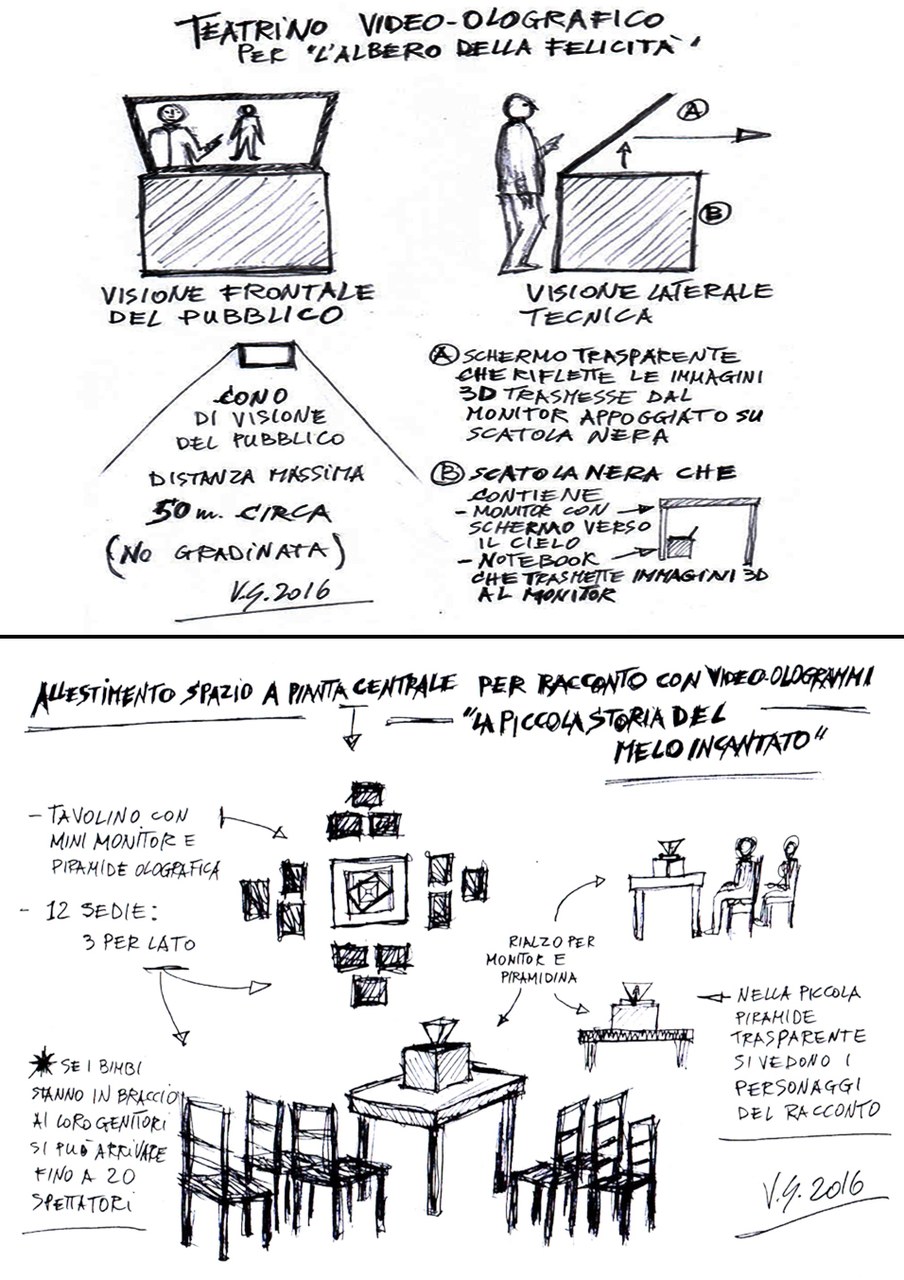 TEATRINO VIDEO-OLOGRAFICO
PER "L'ALBERO DELLA FELICITÀ"
A
B
VISIONE FRONTALE
DEL PUBBLICO
VISIONE LATERALE
TECNICA
CONO
DI VISIONE
DEL PUBBLICO
DISTANZA MASSIMA
50 m. CIRCA
(NO GRADINATA)
V.G. 2016
A SCHERMO TRASPARENTE
CHE RIFLETTE LE IMMAGINI
3D TRASMESSE DAL
MONITOR APPOGGIATO SU
SCATOLA NERA
B SCATOLA NERA CHE
CONTIENE
- MONITOR CON
SCHERMO VERSO
IL CIELO
- NOTEBOOK
CHE TRASMETTE IMMAGINI 3D
AL MONITOR
ALLESTIMENTO SPAZIO A PIANTA CENTRALE PER RACCONTO CON VIDEO-OLOGRAMMI
"LA PICCOLA STORIA DEL
MELO INCANTATO"
- TAVOLINO CON
MINI MONITOR E
PIRAMIDE OLOGRAFICA
- 12 SEDIE:
3 PER LATO
RIALZO PER
MONITOR E
PIRAMIDINA
NELLA PICCOLA
PIRAMIDE
TRASPARENTE
SI VEDONO I
PERSONAGGI
DEL RACCONTO
SE I BIMBI
STANNO IN BRACCIO
AI LORO GENITORI
SI PUÒ ARRIVARE
FINO A 20
SPETTATORI
V.G. 2016